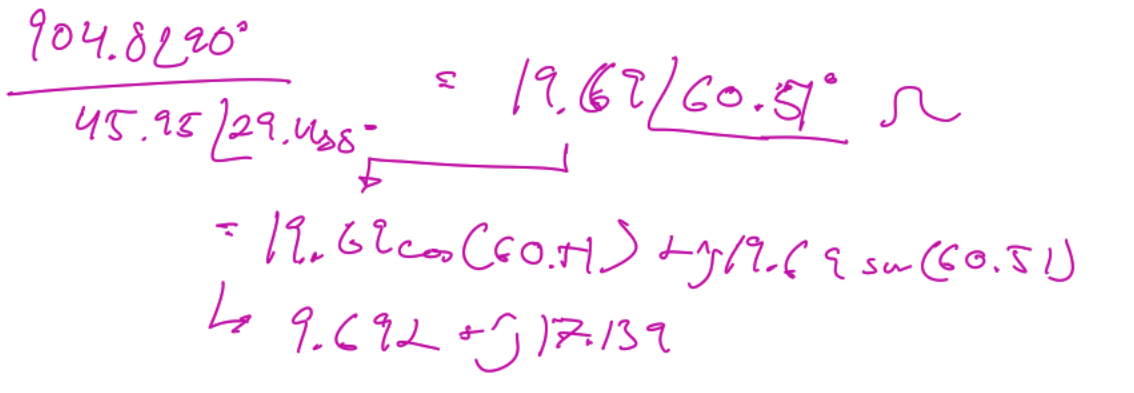 904.8∠90°
45.95∠29.488° = 19.69∠60.51° Ω
= 19.69cos(60.51) + j19.69 sin(60.51)
↳ 9.692 + j17.139